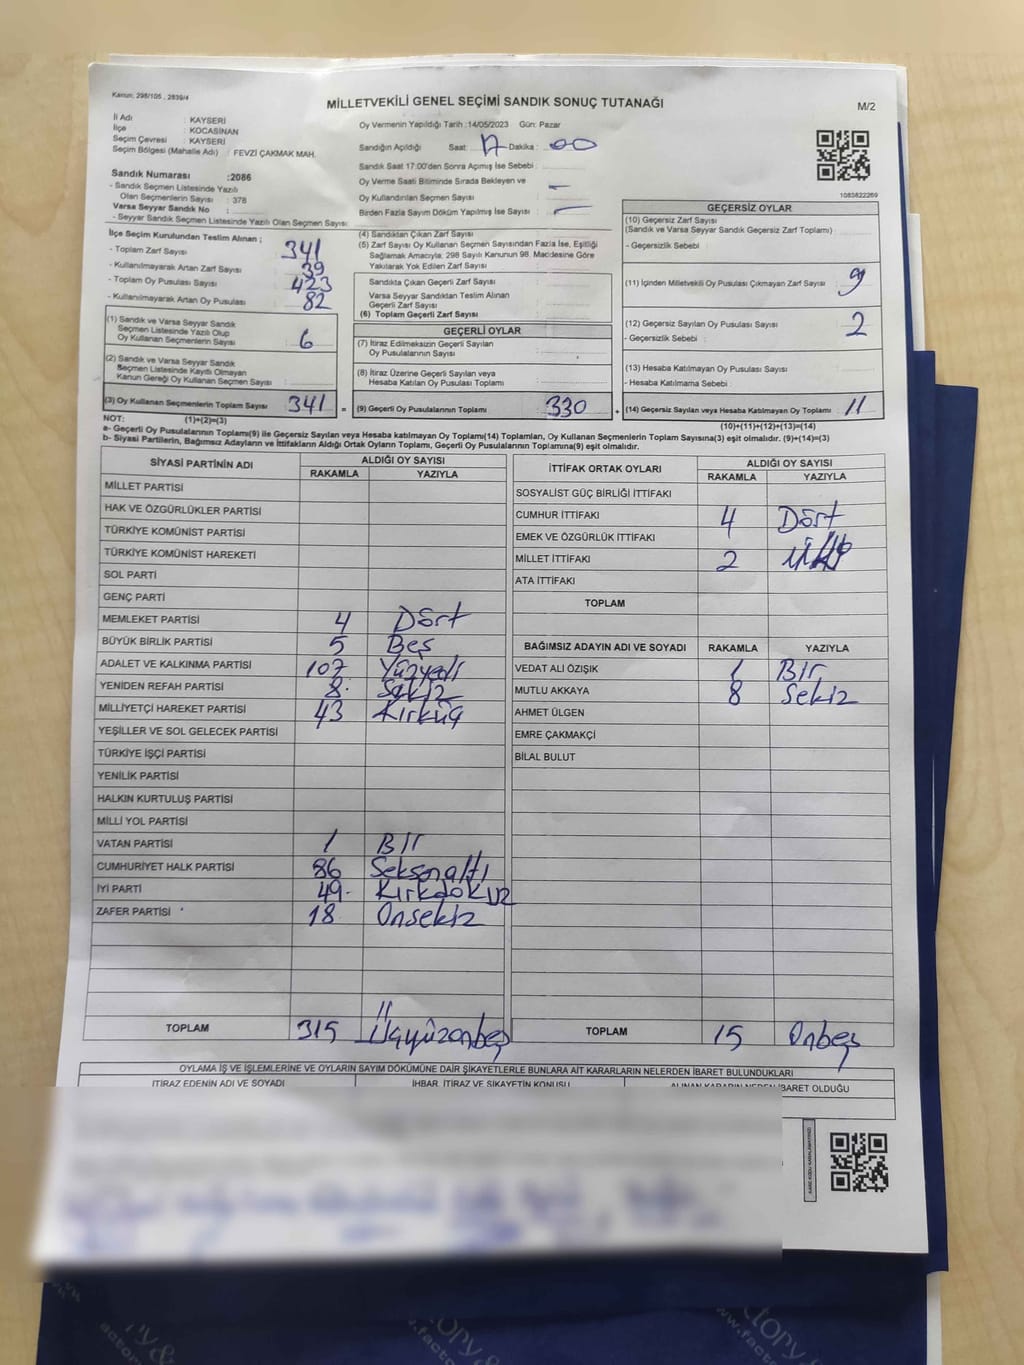 Kanun: 298/105 , 2839/4
MİLLETVEKİLİ GENEL SEÇİMİ SANDIK SONUÇ TUTANAĞI
M/2
İl Adı : KAYSERİ
İlçe : KOCASİNAN
Seçim Çevresi : KAYSERİ
Seçim Bölgesi (Mahalle Adı) : FEVZİ ÇAKMAK MAH.
Sandık Numarası :2086
- Sandık Seçmen Listesinde Yazılı
Olan Seçmenlerin Sayısı : 378
Varsa Seyyar Sandık No :
- Seyyar Sandık Seçmen Listesinde Yazılı Olan Seçmen Sayısı
Oy Vermenin Yapıldığı Tarih :14/05/2023 Gün: Pazar
Sandığın Açıldığı Saat : 17 Dakika : 00
Sandık Saat 17:00'den Sonra Açmış İse Sebebi :
Oy Verme Saati Bitiminde Sırada Bekleyen ve
Oy Kullandırılan Seçmen Sayısı : –
Birden Fazla Sayım Döküm Yapılmış İse Sayısı : –
1083822269
İlçe Seçim Kurulundan Teslim Alınan ;
- Toplam Zarf Sayısı 341
- Kullanılmayarak Artan Zarf Sayısı 39
- Toplam Oy Pusulası Sayısı 423
- Kullanılmayarak Artan Oy Pusulası 82
(1) Sandık ve Varsa Seyyar Sandık
Seçmen Listesinde Yazılı Olup
Oy Kullanan Seçmenlerin Sayısı 6
(2) Sandık ve Varsa Seyyar Sandık
Seçmen Listesinde Kayıtlı Olmayan
Kanun Gereği Oy Kullanan Seçmen Sayısı
(3) Oy Kullanan Seçmenlerin Toplam Sayısı 341 =
(4) Sandıktan Çıkan Zarf Sayısı
(5) Zarf Sayısı Oy Kullanan Seçmen Sayısından Fazla İse, Eşitliği
Sağlamak Amacıyla; 298 Sayılı Kanunun 98. Maddesine Göre
Yakılarak Yok Edilen Zarf Sayısı
Sandıkta Çıkan Geçerli Zarf Sayısı
Varsa Seyyar Sandıktan Teslim Alınan
Geçerli Zarf Sayısı
(6) Toplam Geçerli Zarf Sayısı
GEÇERLİ OYLAR
(7) İtiraz Edilmeksizin Geçerli Sayılan
Oy Pusulalarının Sayısı
(8) İtiraz Üzerine Geçerli Sayılan veya
Hesaba Katılan Oy Pusulası Toplamı
(9) Geçerli Oy Pusulalarının Toplamı 330 +
GEÇERSİZ OYLAR
(10) Geçersiz Zarf Sayısı
(Sandık ve Varsa Seyyar Sandık Geçersiz Zarf Toplamı) :
- Geçersizlik Sebebi :
(11) İçinden Milletvekili Oy Pusulası Çıkmayan Zarf Sayısı 9
(12) Geçersiz Sayılan Oy Pusulası Sayısı 2
- Geçersizlik Sebebi :
(13) Hesaba Katılmayan Oy Pusulası Sayısı
- Hesaba Katılmama Sebebi :
(14) Geçersiz Sayılan veya Hesaba Katılmayan Oy Toplamı 11
NOT: (1)+(2)=(3) (10)+(11)+(12)+(13)=(14)
a- Geçerli Oy Pusulalarının Toplamı(9) ile Geçersiz Sayılan veya Hesaba katılmayan Oy Toplamı(14) Toplamları, Oy Kullanan Seçmenlerin Toplam Sayısına(3) eşit olmalıdır. (9)+(14)=(3)
b- Siyasi Partilerin, Bağımsız Adayların ve İttifakların Aldığı Ortak Oyların Toplamı, Geçerli Oy Pusulalarının Toplamına(9) eşit olmalıdır.
SİYASİ PARTİNİN ADI ALDIĞI OY SAYISI
RAKAMLA YAZIYLA
MİLLET PARTİSİ
HAK VE ÖZGÜRLÜKLER PARTİSİ
TÜRKİYE KOMÜNİST PARTİSİ
TÜRKİYE KOMÜNİST HAREKETİ
SOL PARTİ
GENÇ PARTİ
MEMLEKET PARTİSİ 4 Dört
BÜYÜK BİRLİK PARTİSİ 5 Beş
ADALET VE KALKINMA PARTİSİ 107 Yüzyedi
YENİDEN REFAH PARTİSİ 8 Sekiz
MİLLİYETÇİ HAREKET PARTİSİ 43 Kırküç
YEŞİLLER VE SOL GELECEK PARTİSİ
TÜRKİYE İŞÇİ PARTİSİ
YENİLİK PARTİSİ
HALKIN KURTULUŞ PARTİSİ
MİLLİ YOL PARTİSİ
VATAN PARTİSİ 1 Bir
CUMHURİYET HALK PARTİSİ 86 Seksenaltı
İYİ PARTİ 49 Kırkdokuz
ZAFER PARTİSİ 18 Onsekiz
TOPLAM 315 Üçyüzonbeş
İTTİFAK ORTAK OYLARI ALDIĞI OY SAYISI
RAKAMLA YAZIYLA
SOSYALİST GÜÇ BİRLİĞİ İTTİFAKI
CUMHUR İTTİFAKI 4 Dört
EMEK VE ÖZGÜRLÜK İTTİFAKI
MİLLET İTTİFAKI 2
ATA İTTİFAKI
TOPLAM
BAĞIMSIZ ADAYIN ADI VE SOYADI RAKAMLA YAZIYLA
VEDAT ALİ ÖZIŞIK 1 Bir
MUTLU AKKAYA 8 Sekiz
AHMET ÜLGEN
EMRE ÇAKMAKÇİ
BİLAL BULUT
TOPLAM 15 Onbeş
OYLAMA İŞ VE İŞLEMLERİNE VE OYLARIN SAYIM DÖKÜMÜNE DAİR ŞİKAYETLERLE BUNLARA AİT KARARLARIN NELERDEN İBARET BULUNDUKLARI
İTİRAZ EDENİN ADI VE SOYADI İHBAR, İTİRAZ VE ŞİKAYETİN KONUSU ALINAN KARARIN NEDEN İBARET OLDUĞU